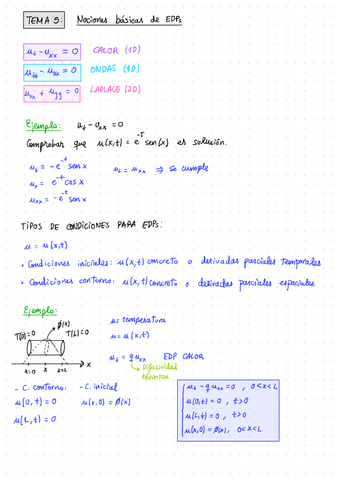 TEMA 5: Nociones básicas de EDPs
u_t - u_xx = 0 CALOR (1D)
u_tt - u_xx = 0 ONDAS (1D)
u_xx + u_yy = 0 LAPLACE (2D)
Ejemplo: u_t - u_xx = 0
Comprobar que u(x,t) = e^-t sen(x) es solución.
u_t = -e^-t sen x
u_t = u_xx ⇒ se cumple
u_x = e^-t cos x
u_xx = -e^-t sen x
TIPOS DE CONDICIONES PARA EDPs:
u = u(x,t)
• Condiciones iniciales: u(x,t) concreto o derivadas parciales temporales
• Condiciones contorno: u(x,t) concreto o derivadas parciales espaciales.
Ejemplo:
T(0)=0 ϕ(x) T(L)=0
x=0 x x=L x
u = temperatura
u = u(x,t)
u_t = q u_xx EDP CALOR
Difusividad
térmica
- C. contorno: - C. inicial
u(0,t) = 0 u(x,0) = ϕ(x)
u(L,t) = 0
u_t - q u_xx = 0 , 0<x<L
u(0,t) = 0 , t>0
u(L,t) = 0 , t>0
u(x,0) = ϕ(x), 0<x<L